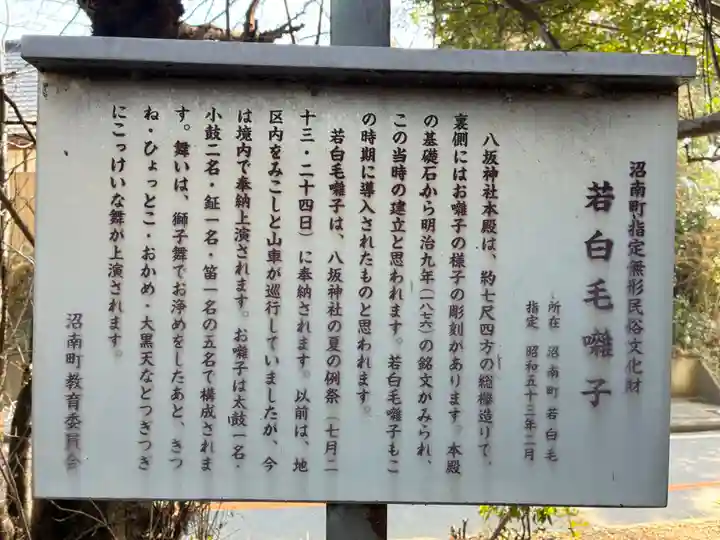 沼南町指定無形民俗文化財
若白毛囃子
所在　沼南町若白毛
指定　昭和五十三年二月
八坂神社本殿は、約七尺四方の総欅造りで、
裏側にはお囃子の様子の彫刻があります。本殿
の基礎石から明治九年（一八七六）の銘文がみられ、
この当時の建立と思われます。若白毛囃子もこ
の時期に導入されたものと思われます。
若白毛囃子は、八坂神社の夏の例祭（七月二
十三・二十四日）に奉納されます。以前は、地
区内をみこしと山車が巡行していましたが、今
は境内で奉納上演されます。お囃子は太鼓一名・
小鼓二名・鉦一名・笛一名の五名で構成されま
す。舞いは、獅子舞でお浄めをしたあと、きつ
ね・ひょっとこ・おかめ・大黒天などつぎつぎ
にこっけいな舞が上演されます。
沼南町教育委員会